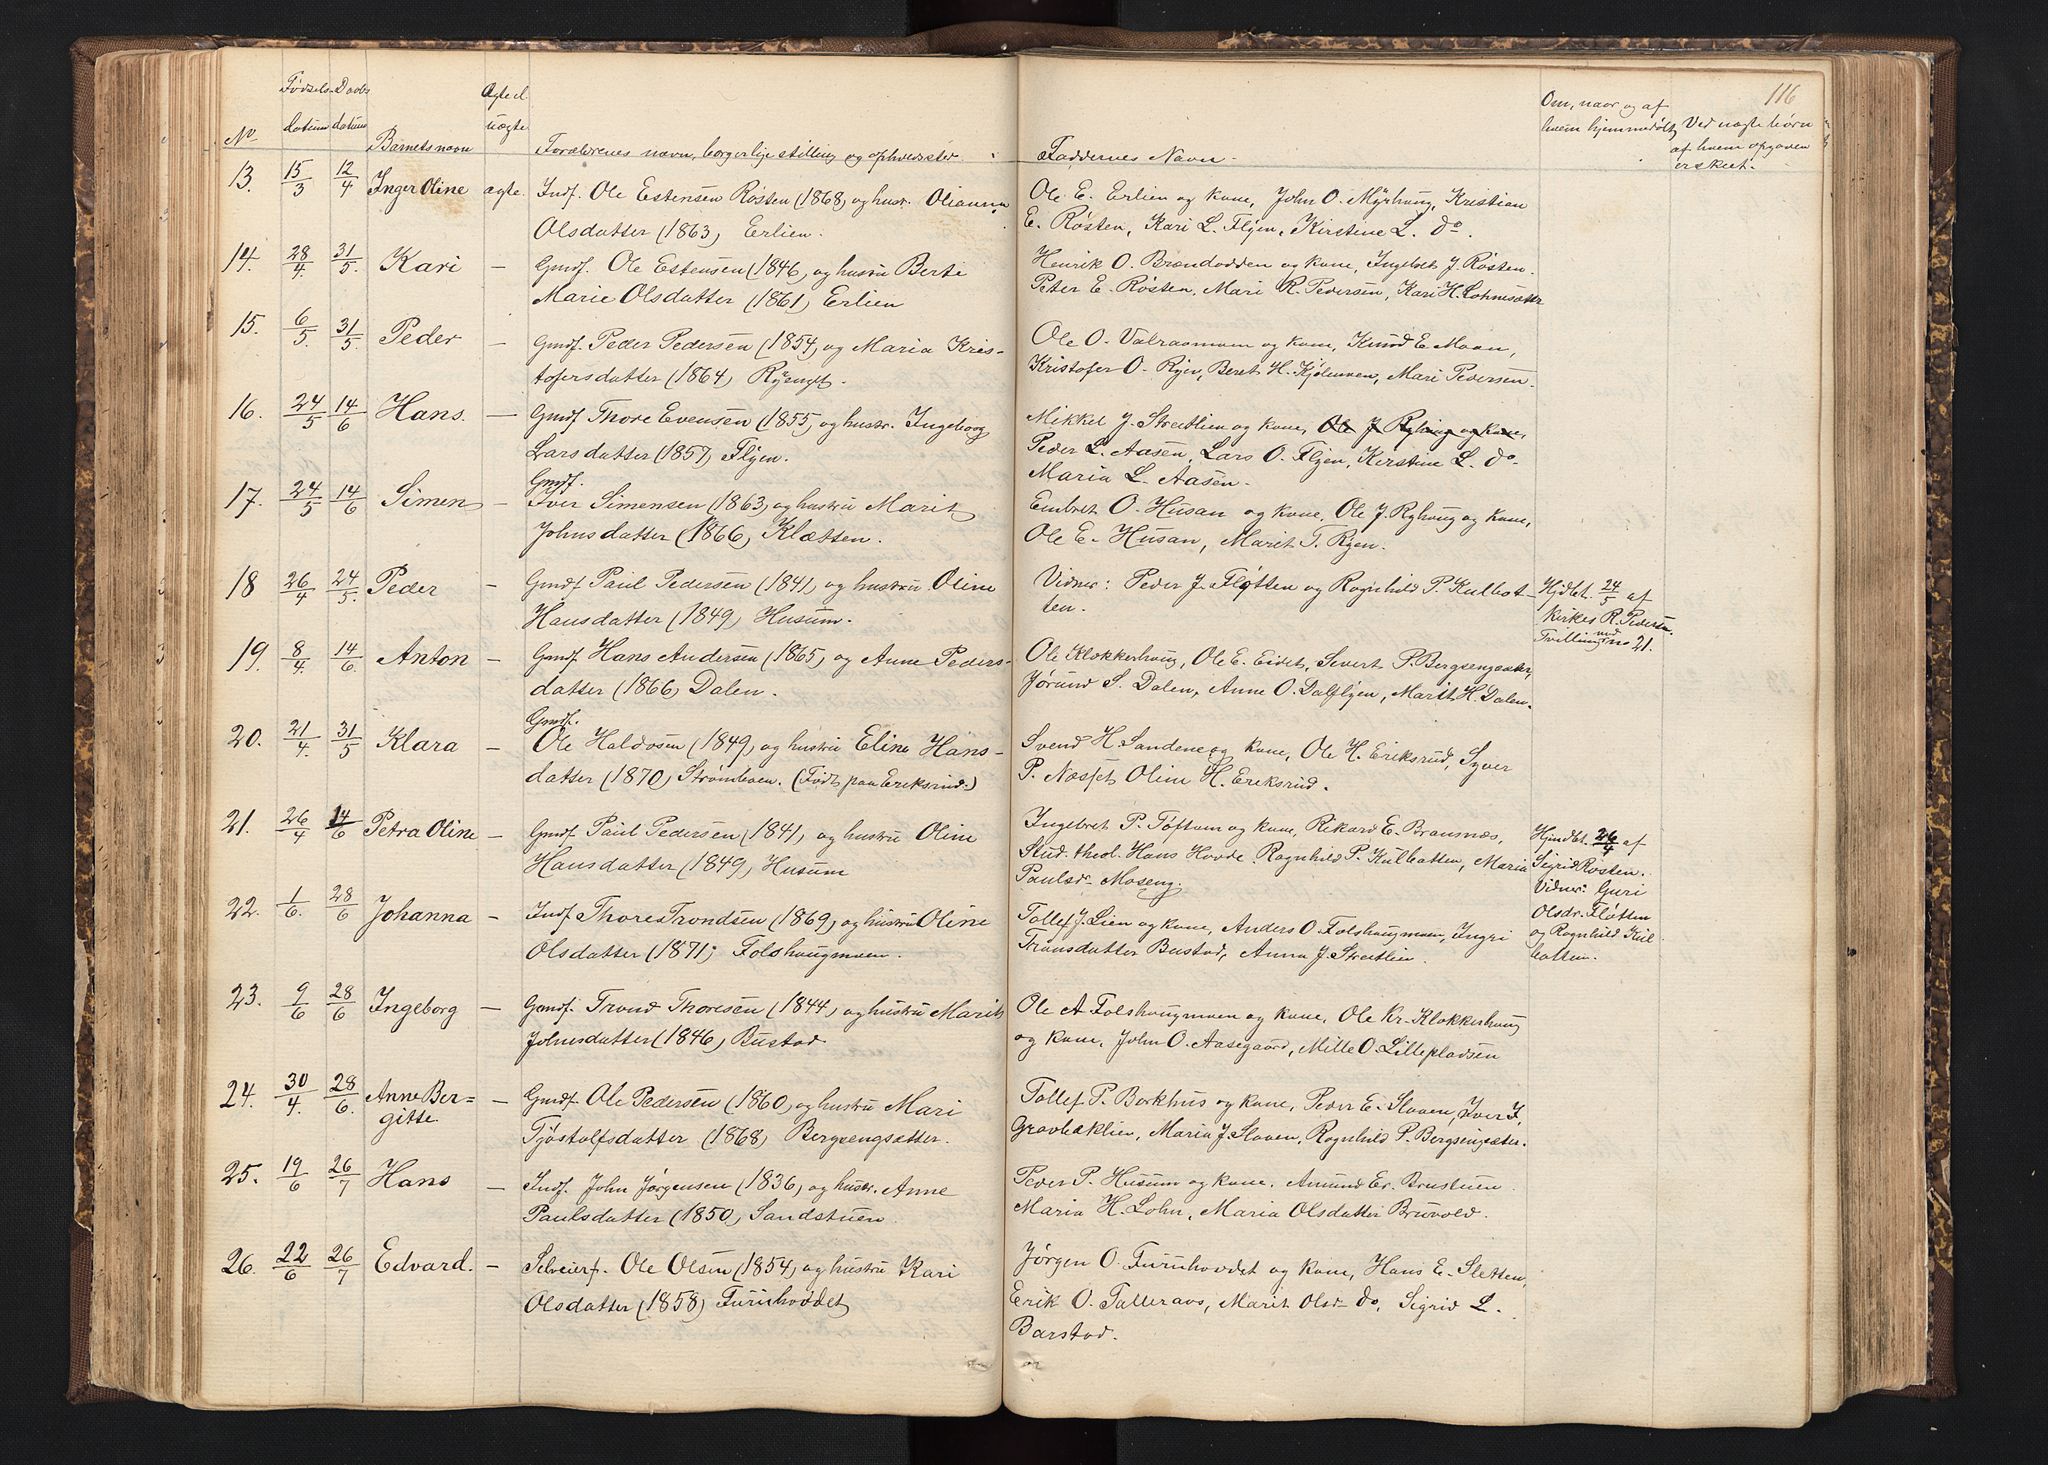 116
No
Fødsels- datum
Daabs datum
Barnets navn
Ægte el. uægte
Forældrenes navn, borgerlige stilling og opholdssted.
Faddernes Navn.
Om, naar og af hvem hjemmedøbt
Ved uægte børn af hvem opgaven er skeet.
13. 15/3 12/4 Inger Oline ægte. Indf. Ole Estensen Røsten (1868) og hust. Olianna
Olsdatter (1863) Erlien.
Ole E. Erlien og kone, John O. Myrhaug, Kristian
E. Røsten, Kari L. Flyen, Kirstine L. do.
14. 28/4 31/5. Kari — Gmdf. Ole Estensen (1846) og hustru Berte
Marie Olsdatter (1861) Erlien
Henrik O. Brændodden og kone, Ingebret J. Røsten.
Peter E. Røsten, Mari R. Pedersen, Kari H. Lohnsætter
15. 6/5. 31/5. Peder — Gmdf. Peder Pedersen (1854) og Maria Kris-
tofersdatter (1864) Ryenget.
Ole O. Valraamoen og kone, Knud E. Moan,
Kristofer O. Ryen, Beret H. Kjølenmoen, Mari Pedersen.
16. 24/5 14/6 Hans. — Gmdf Thore Evensen (1855) og hustr. Ingeborg
Larsdatter (1857) Flyen.
Mikkel J. Streitlien og kone, Ole J. Ryhaug og kone,
Peder L. Aasen, Lars O. Flyen, Kirstine L. do.
Maria L. Aasen.
17. 24/5 14/6 Simen — Gmdf.
Iver Simensen (1863) og hustru Marit
Johnsdatter (1866) Klætten.
Embret O. Husan og kone, Ole J. Ryhaug og kone,
Ole E. Husan, Marit T. Ryen.
18 26/4 24/5. Peder — Gmdf Paul Pedersen (1841) og hustru Oline
Hansdatter (1849) Husum.
Vidner: Peder J. Fløtten og Ragnhild P. Kulbot-
ten.
Hjdbt. 24/5 af
kirkes. R. Pedersen.
Tvilling med no 21.
19. 8/4. 14/6 Anton — Gmdf Hans Andersen (1865) og Anne Peders-
datter (1866) Dalen.
Ole Klokkerhaug, Ole E. Eidet, Severt P. Bergsengsæter,
Jørund S. Dalen, Anne O. Dalflyen, Marit H. Dalen.
20. 21/4 31/5 Klara — Gmdf.
Ole Haldosen (1849) og hustru Eline Hans-
datter (1870) Strømboen. (Født paa Eriksrud.)
Svend H. Sandeng og kone, Ole H. Eriksrud, Syver
P. Næsset Oline H. Eriksrud.
21. 26/4 14/6 Petra Oline — Gmdf Paul Pedersen (1841) og hustru Oline
Hansdatter (1849) Husum
Ingebret P. Toftum og kone, Rikard E. Bransnæs,
Stud. theol. Hans Hovde. Ragnhild P. Kulbotten, Maria
Paulsdr. Moseng.
Hjmdbt. 26/4 af
Sigrid Røsten.
Vidner: Guri
Olsdr. Fløtten
og Ragnhild Kul-
botten.
22. 1/6. 28/6 Johanna — Indf Thores Trondsen (1869) og hustru Oline
Olsdatter (1871) Folshaugmoen.
Tollef J. Lien og kone, Anders O. Folshaugmoen, Ingri
Tronsdatter Bustad, Anna J. Streitlien.
23. 9/6 28/6 Ingeborg — Gmdf. Trond Thoresen (1844) og hustru Marit
Johnsdatter (1846) Bustad
Ole A Folshaugmoen og kone, Ole Kr. Klokkerhaug
og kone, John O. Aasegaard, Mille O. Lilleplassen
24. 30/4. 28/6. Anne Ber=
gitte — Gmdf. Ole Pedersen (1860) og hustru Mari
Tjøstolfsdatter (1868) Bergsengsætter.
Tollef P. Borkhus og kone, Peder E. Sloven, Iver I.
Gravbæklien, Maria J. Sloven, Ragnhild P. Bergsengsæter.
25. 19/6 26/7 Hans — Indf. John Jørgensen (1836) og hustr. Anne
Paulsdatter (1850) Sandstuen.
Peder P. Husum og kone, Amund Er. Brustuen.
Maria H. Lohn, Maria Olsdatter Bruvold.
26. 22/6 26/7 Edvard. — Selveierf. Ole Olsen (1854) og hustru Kari
Olsdatter (1858) Furuhovdet
Jørgen O. Furuhovdet og kone, Hans E. Sletten,
Erik O. Tolleraas, Marit Olsd. do, Sigrid L.
Barstad.